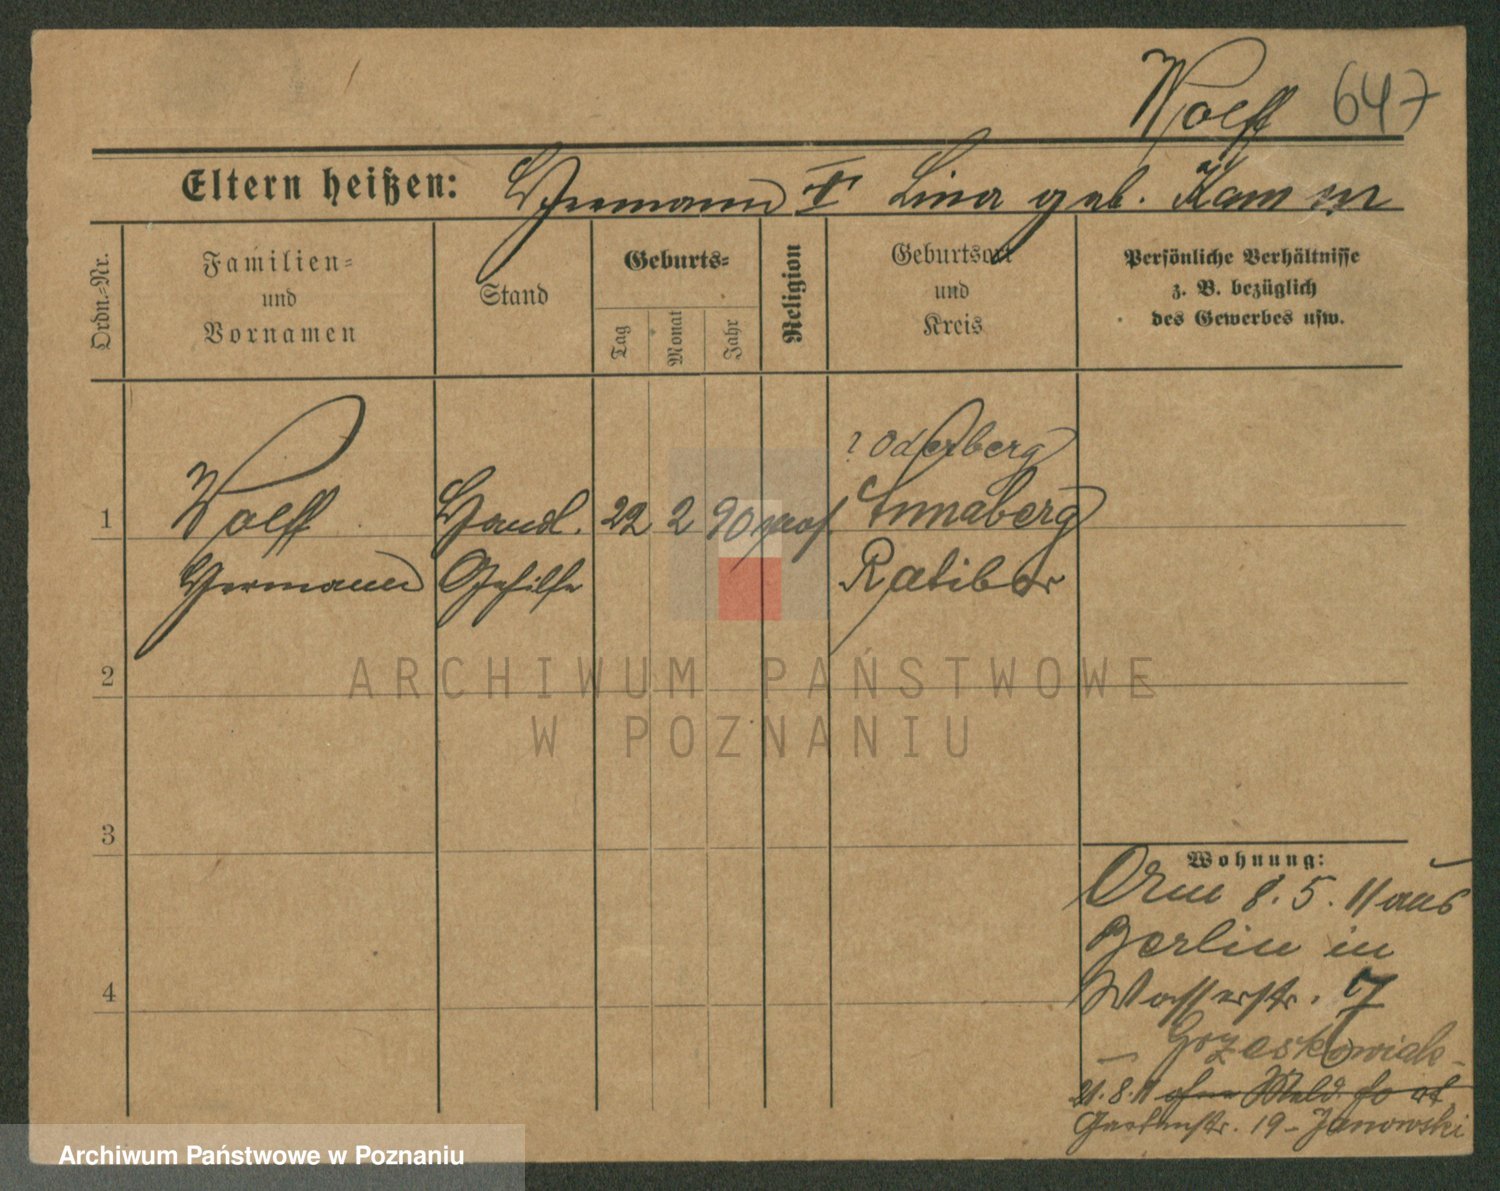 Wolff 647
Eltern heißen: Hermann ✝ Lina geb. Kamm
Ordn.-Nr.
Familien-
und
Vornamen
Stand
Geburts-
Tag
Monat
Jahr
Religion
Geburtsort
und
Kreis
Persönliche Verhältnisse
z. B. bezüglich
des Gewerbes usw.
? Oderberg
1 Wolff Handl. 22 2 90 mos. Annaberg
Hermann Gehilfe Ratibor
2
3
4
Wohnung:
8. 5. 11 aus
Berlin in
Wasserstr. 7
Grzeskowiak
21.8.11 ohne Meld. fort
Gartenstr. 19 - Janowski
ARCHIWUM PAŃSTWOWE
W POZNANIU
Archiwum Państwowe w Poznaniu